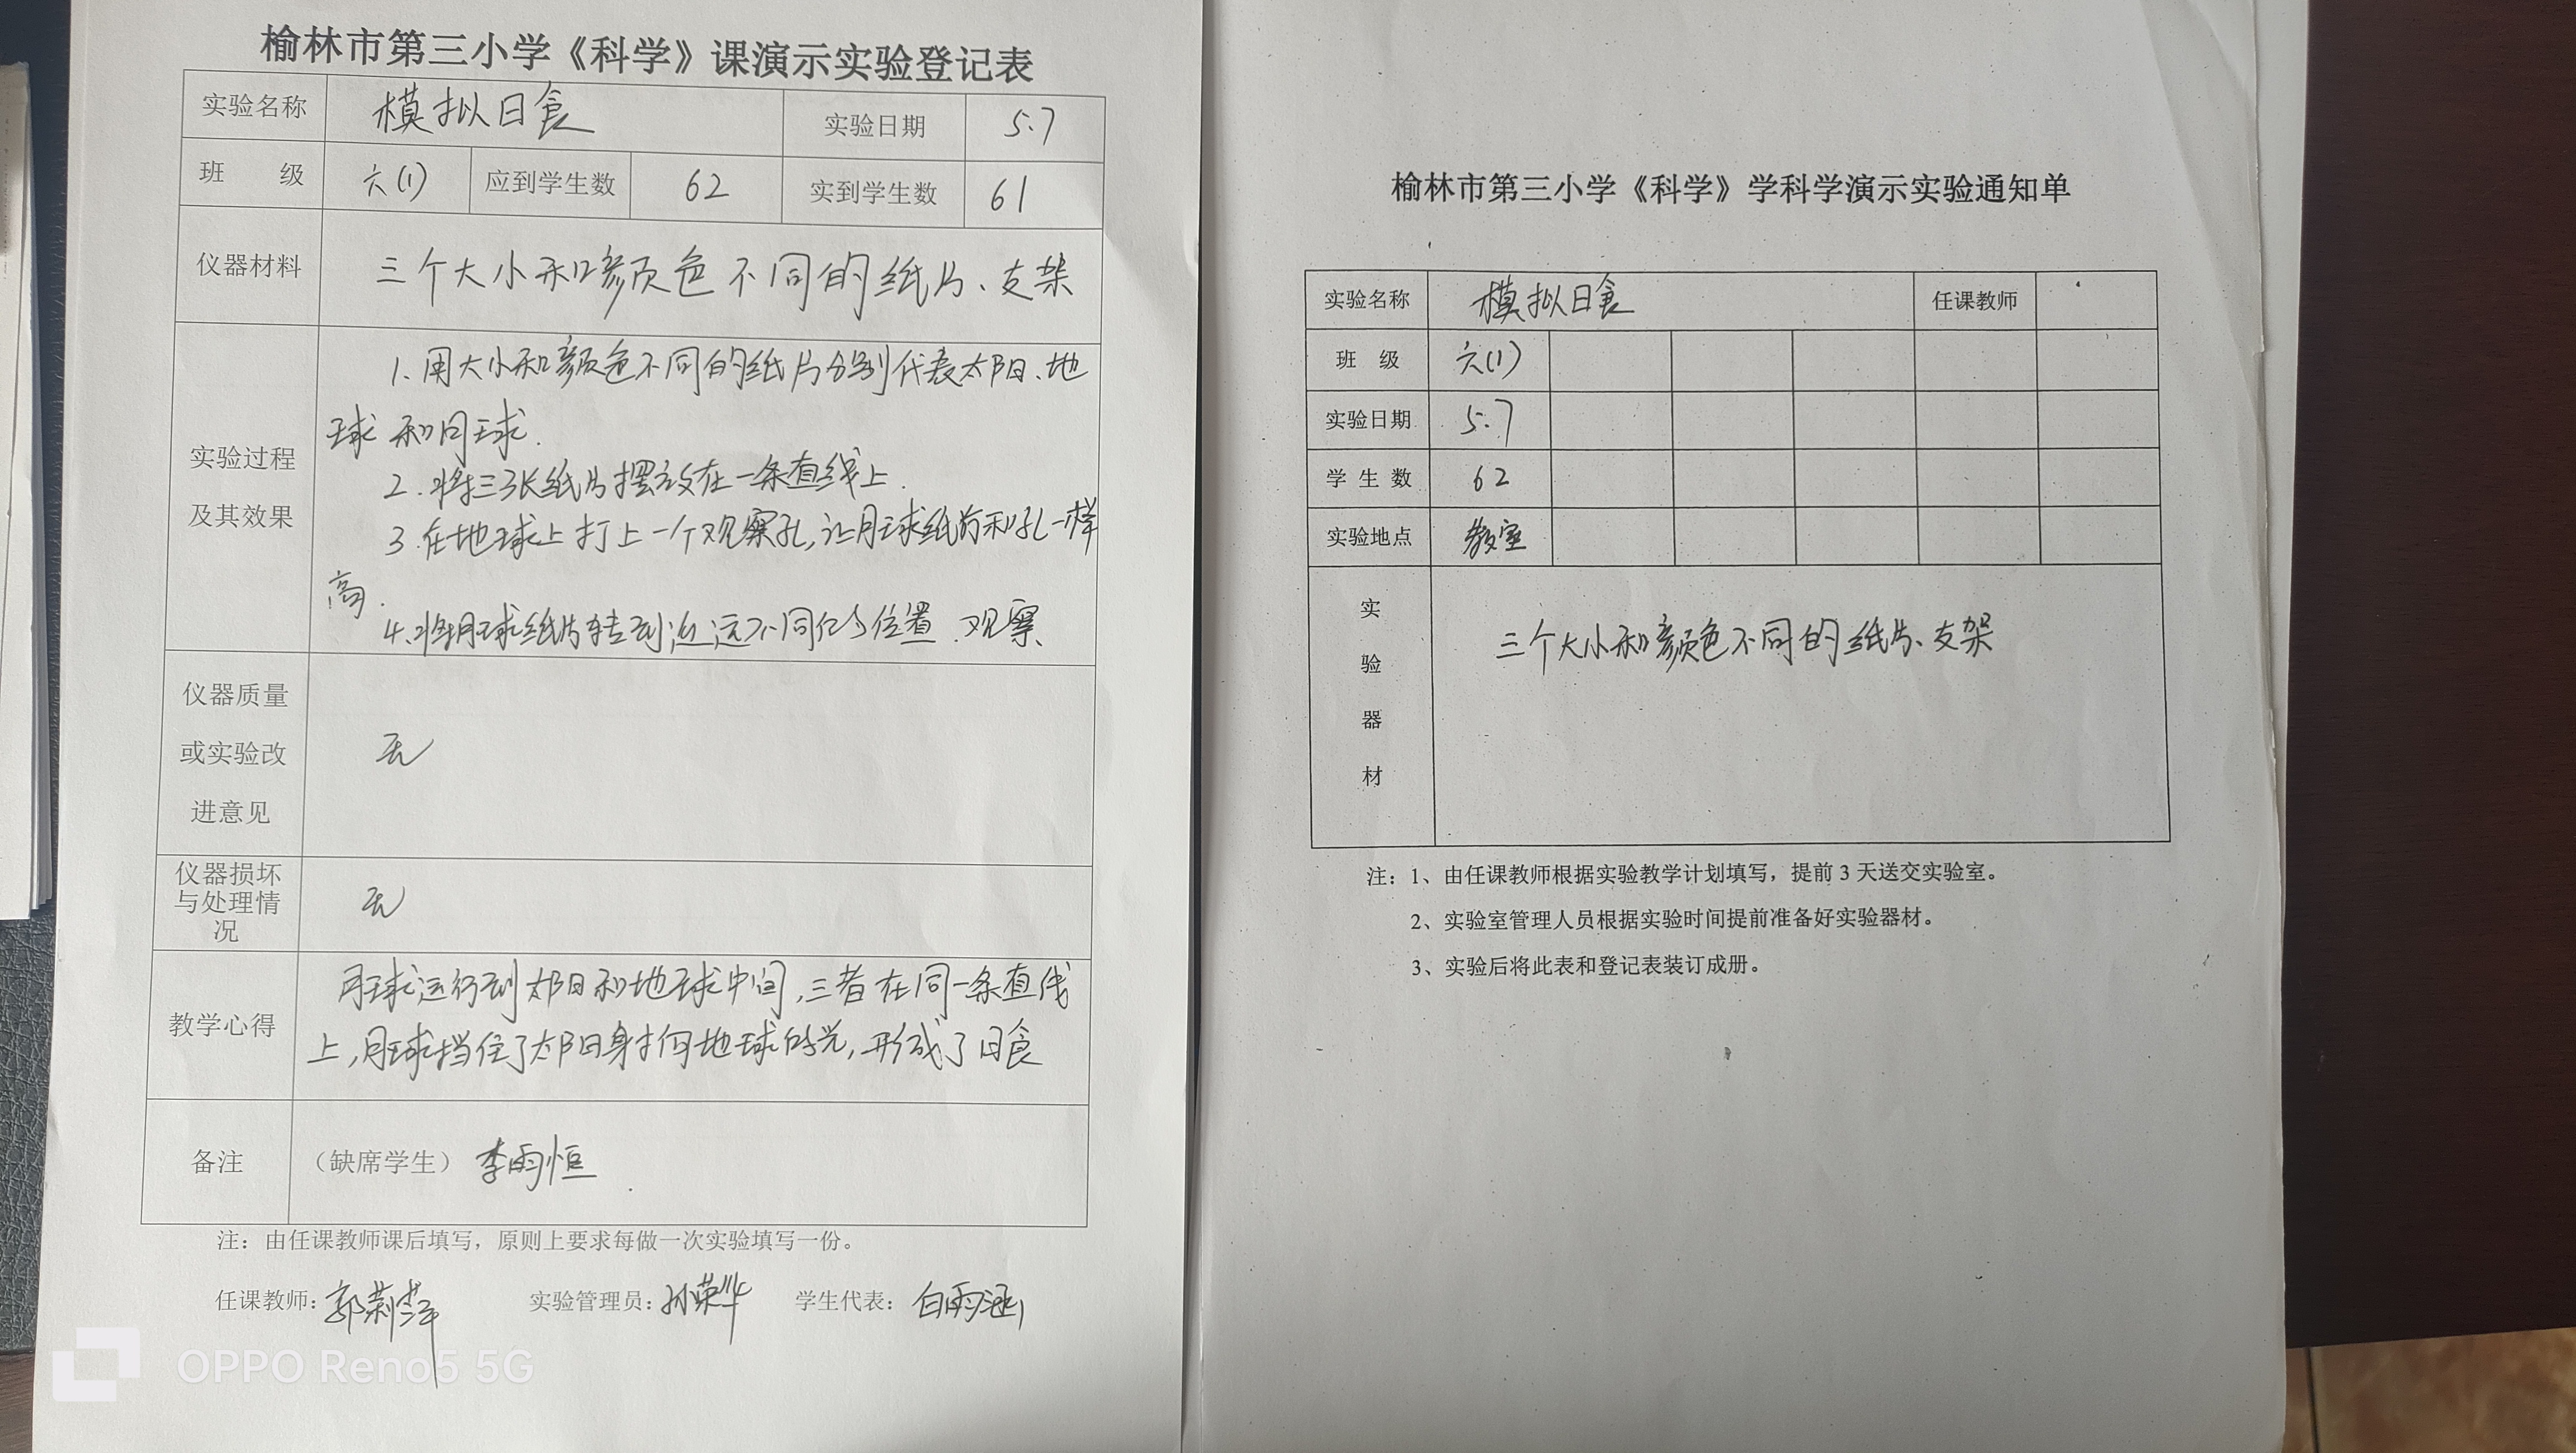 榆林市第三小学《科学》课演示实验登记表
实验名称 模拟日食 实验日期 5.7
班 级 六(1) 应到学生数 62 实到学生数 61
仪器材料 三个大小和颜色不同的纸片、支架
实验过程
及其效果
1、用大小和颜色不同的纸片分别代表太阳、地
球和月球.
2.将三张纸片摆放在一条直线上.
3.在地球上打上一个观察孔,让月球纸片和孔一样
高.
4.将月球纸片转到近远不同的位置、观察、
仪器质量
或实验改
进意见
无
仪器损坏
与处理情
况
无
教学心得
月球运行到太阳和地球中间,三者在同一条直线
上,月球挡住了太阳射向地球的光,形成了日食
备注 （缺席学生） 李雨恒
注：由任课教师课后填写，原则上要求每做一次实验填写一份。
任课教师： 实验管理员：孙荣华 学生代表：白雨涵
OPPO Reno5 5G
榆林市第三小学《科学》学科学演示实验通知单
实验名称 模拟日食 任课教师
班 级 六(1)
实验日期 5.7
学 生 数 62
实验地点 教室
实
验
器
材
三个大小和颜色不同的纸片、支架
注：1、由任课教师根据实验教学计划填写，提前 3 天送交实验室。
2、实验室管理人员根据实验时间提前准备好实验器材。
3、实验后将此表和登记表装订成册。